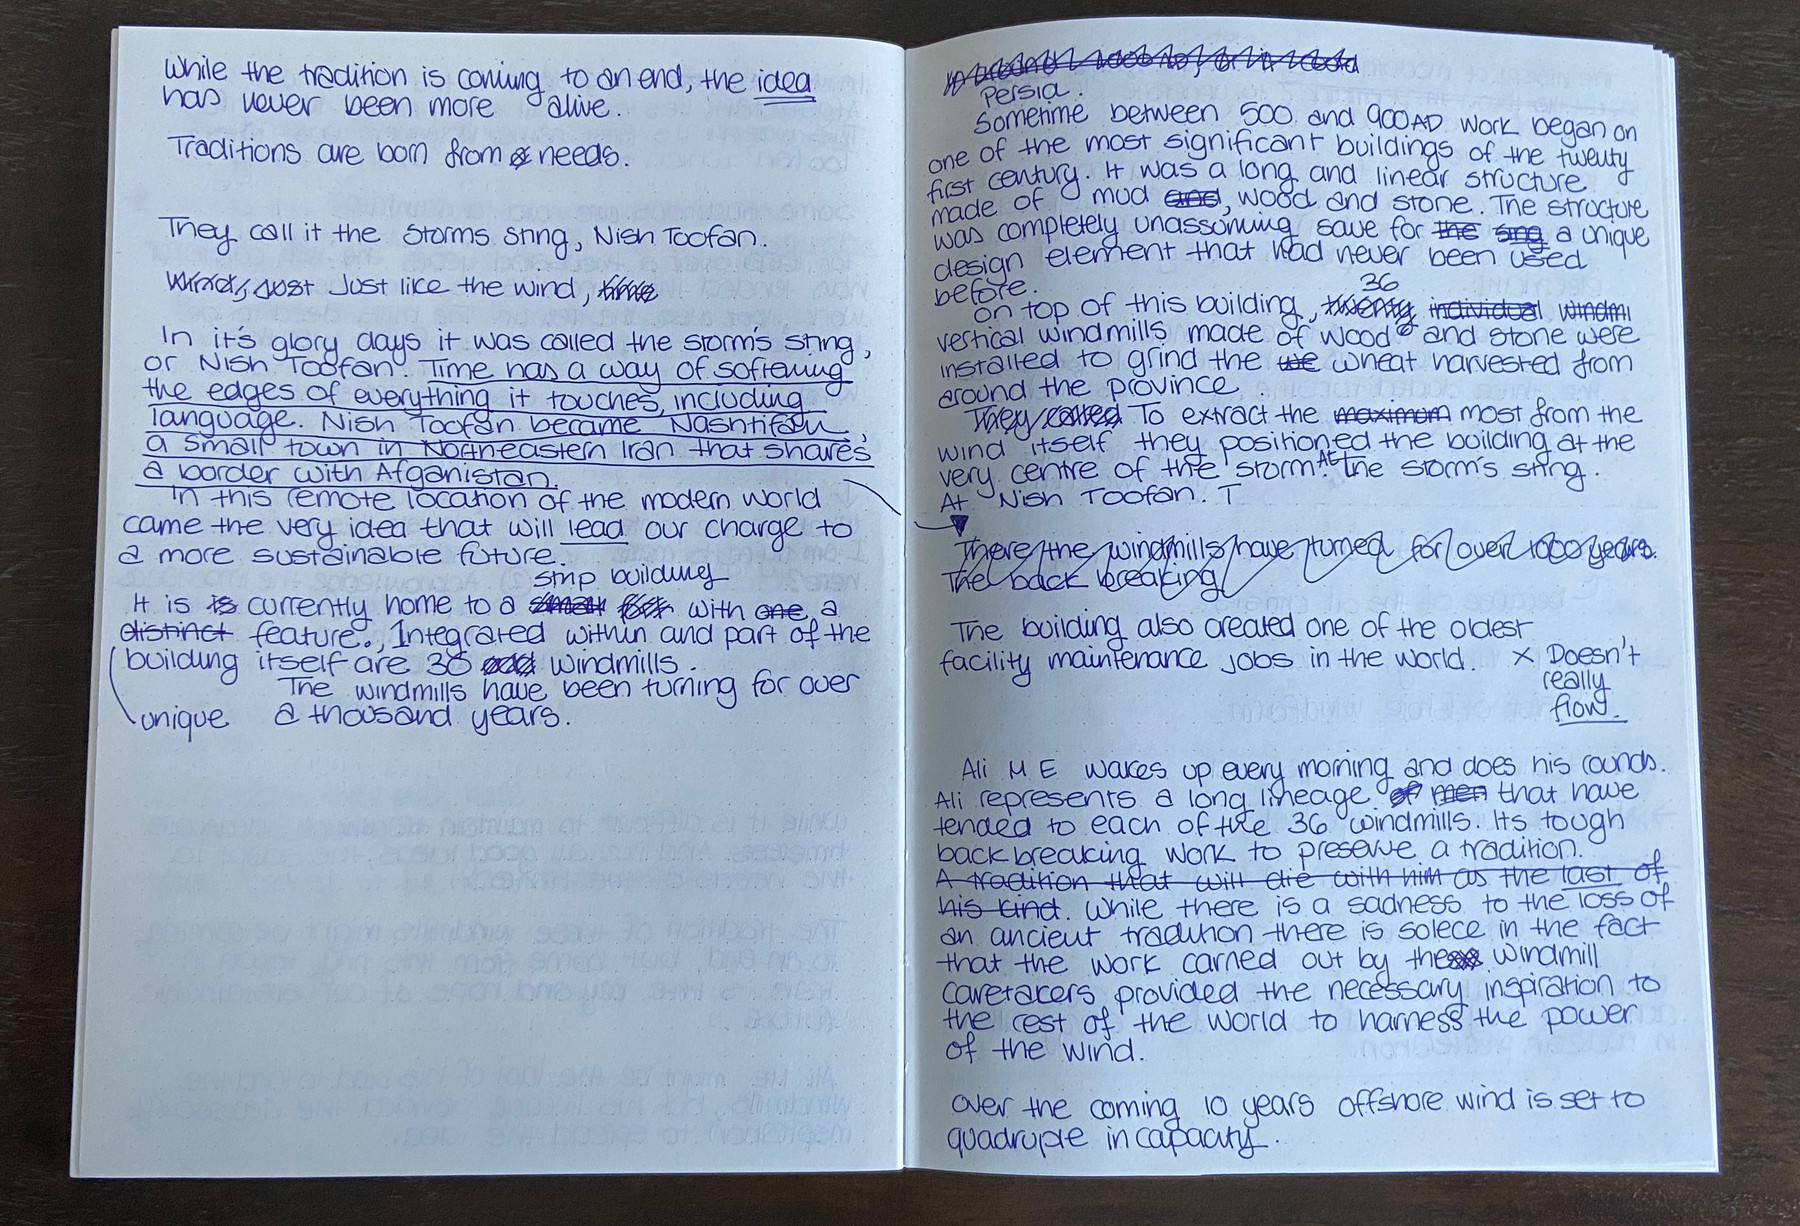 While the tradition is coming to an end, the idea
has never been more alive.
Traditions are born from needs.
They call it the Storms Sting, Nish Toofan.
Just like the wind, time
In it's glory days it was called the storm's sting,
or Nish Toofan. Time has a way of softening
the edges of everything it touches, including
language. Nish Toofan became Nashtifan,
a small town in Northeastern Iran that shares
a border with Afganistan.
In this remote location of the modern world
came the very idea that will lead our charge to
a more sustainable future.
strip building
It is is currently home to a small with one, a
distinct feature. Integrated within and part of the
building itself are 36 windmills.
The windmills have been turning for over
unique a thousand years.
Persia.
Sometime between 500 and 900AD work began on
one of the most significant buildings of the twenty
first century. It was a long and linear structure
made of mud and, wood and stone. The structure
was completely unassoming save for the sing a unique
design element that had never been used
before.
36
on top of this building, twenty individual windmi
vertical windmills made of wood and stone were
installed to grind the we wheat harvested from
around the province.
They called To extract the maximum most from the
wind itself they positioned the building at the
very centre of the storm. At the storm's sting.
At Nish Toofan. T
There, the windmills have turned for over 1000 years.
The back breaking
The building also created one of the oldest
facility maintenance jobs in the world. x Doesn't
really
flow.
Ali M E wakes up every morning and does his rounds.
Ali represents a long lineage of men that have
tended to each of the 36 windmills. Its tough
back breaking work to preserve a tradition.
A tradition that will die with him as the last of
his kind. While there is a sadness to the loss of
an ancient tradition there is solece in the fact
that the work carried out by the windmill
caretakers provided the necessary inspiration to
the rest of the world to harness the power
of the wind.
Over the coming 10 years offshore wind is set to
quadruple in capacity.